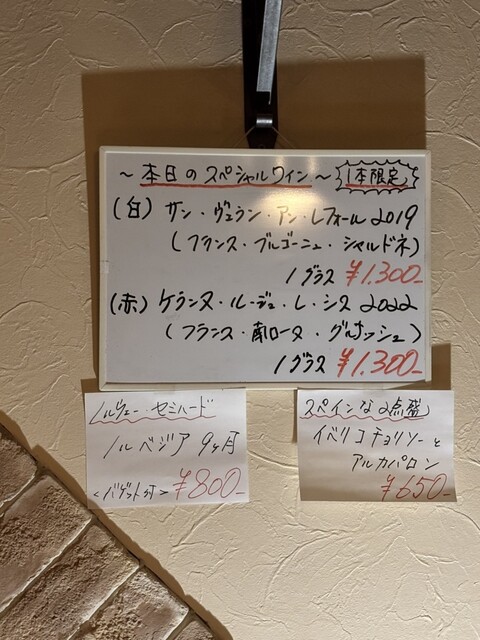 ～本日のスペシャルワイン～ 1本限定
(白) サン・ヴェラン・アン・レフォール 2019
(フランス・ブルゴーニュ・シャルドネ)
1グラス ¥1.300-
(赤) ケランヌ・ルージュ・レ・シス 2022
(フランス・南ローヌ・グルナッシュ)
1グラス ¥1.300-
ノルウェー・セミハード
ノルベジア 9ヶ月
<バゲット付> ¥800-
スペインな2点盛
イベリコチョリソーと
アルカパロン
¥650-